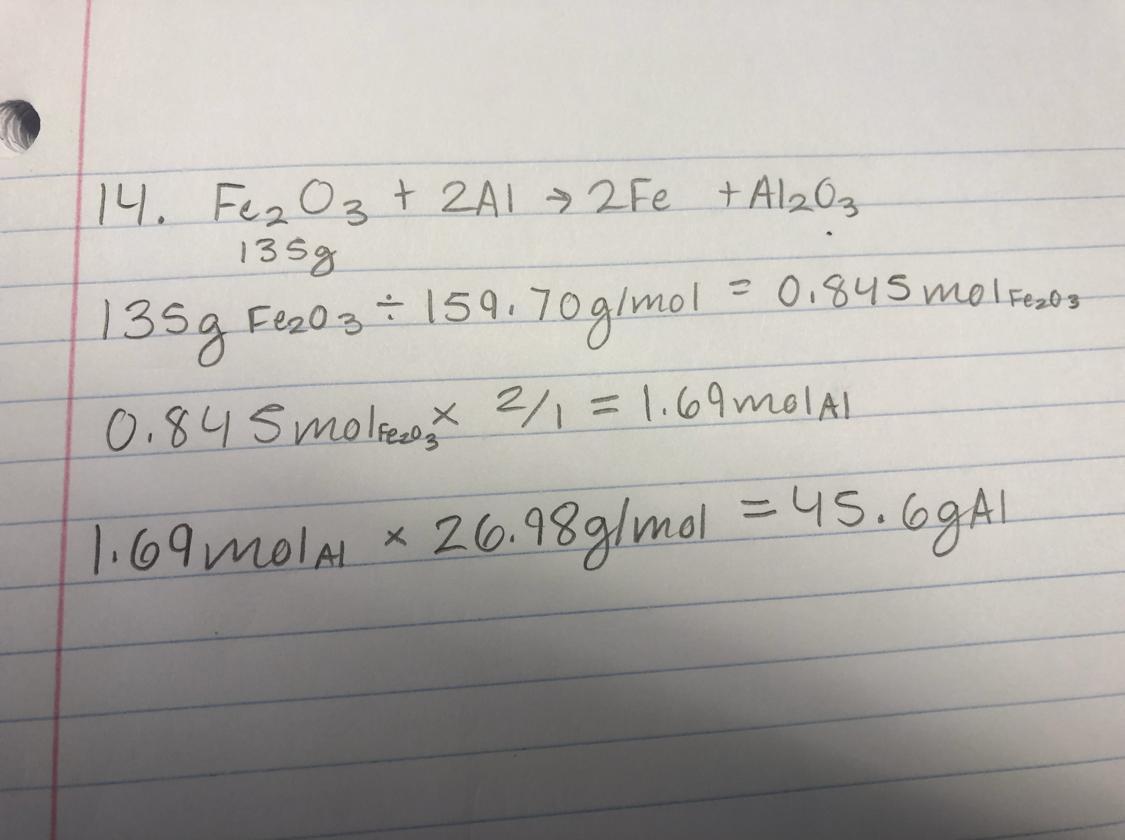 14. Fe₂O₃ + 2Al → 2Fe + Al₂O₃
135g
135g Fe₂O₃ ÷ 159.70g/mol = 0.845molFe₂O₃
0.845molFe₂O₃ × 2/1 = 1.69molAl
1.69molAl × 26.98g/mol = 45.6gAl